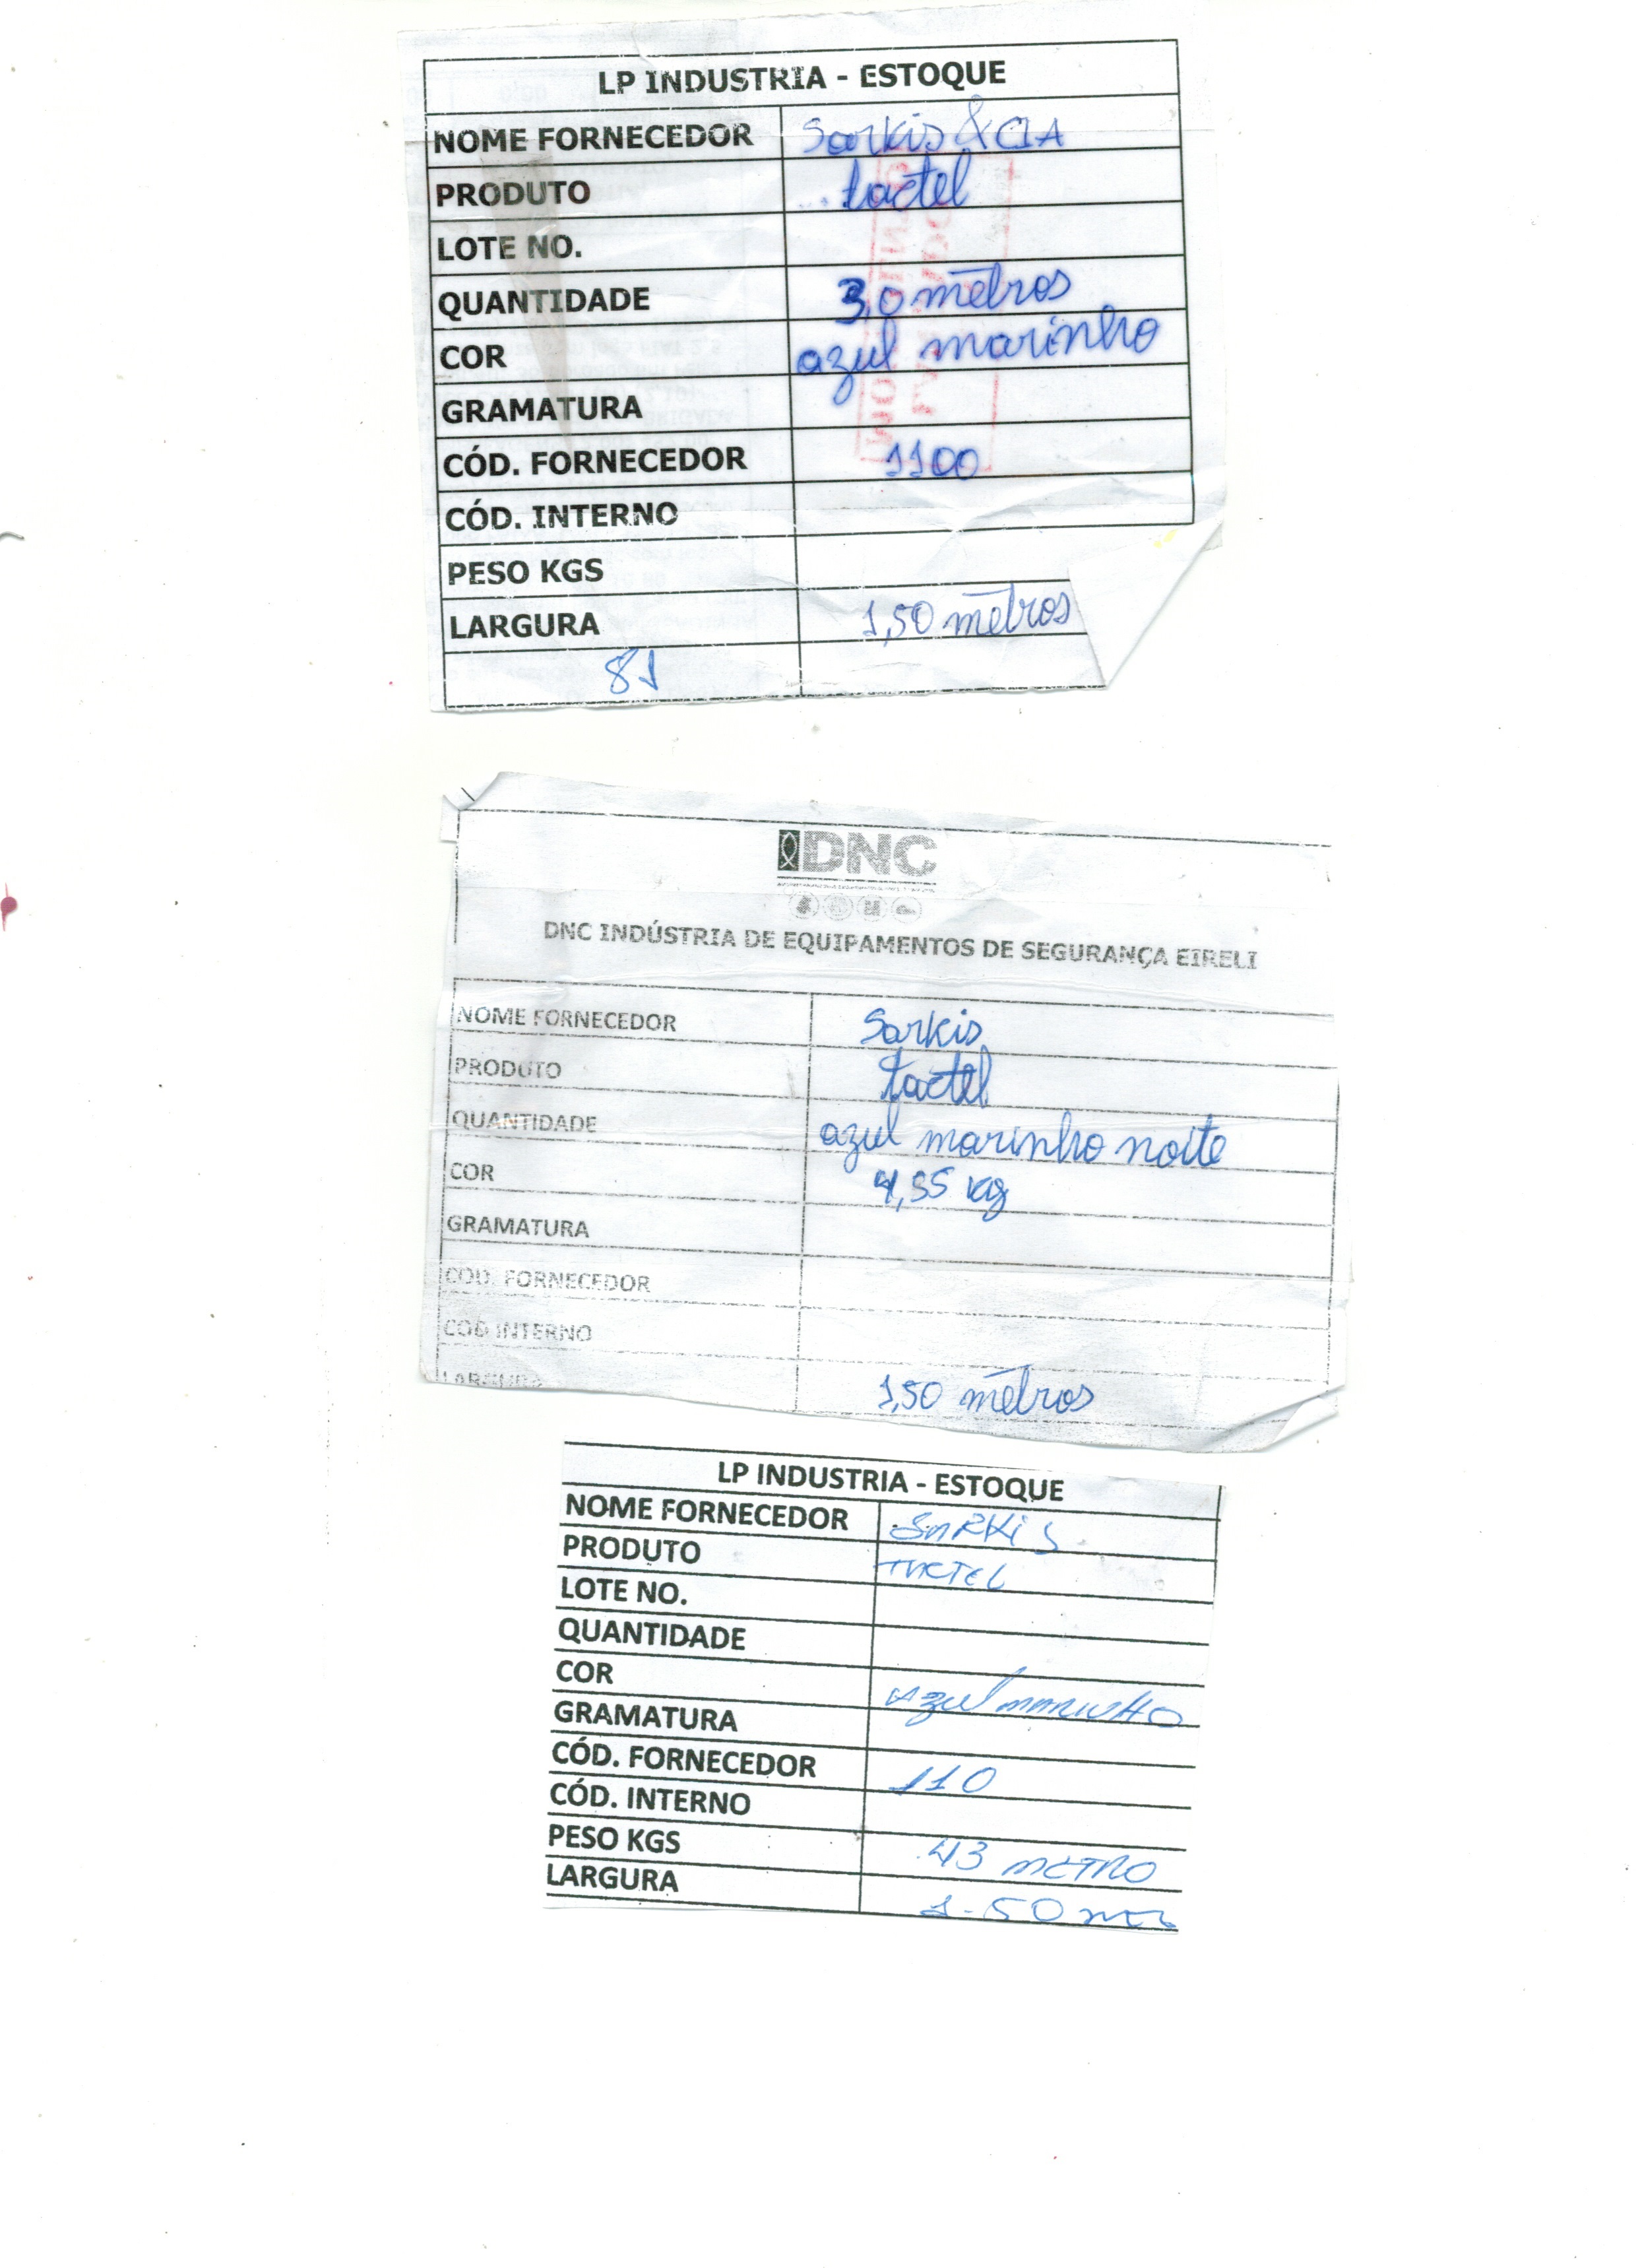 LP INDUSTRIA - ESTOQUE
NOME FORNECEDOR Sarkis & CIA
PRODUTO tactel
LOTE NO.
QUANTIDADE 3,0 metros
COR azul marinho
GRAMATURA
CÓD. FORNECEDOR 1100
CÓD. INTERNO
PESO KGS
LARGURA 1,50 metros
81
DNC
DNC INDÚSTRIA DE EQUIPAMENTOS DE SEGURANÇA EIRELI
NOME FORNECEDOR Sarkis
PRODUTO tactel
QUANTIDADE azul marinho noite
COR 4,55 kg
GRAMATURA
COD. FORNECEDOR
COD INTERNO
LARGURA 1,50 metros
LP INDUSTRIA - ESTOQUE
NOME FORNECEDOR SARKIS
PRODUTO TACTEL
LOTE NO.
QUANTIDADE
COR Azul MARINHO
GRAMATURA
CÓD. FORNECEDOR 110
CÓD. INTERNO
PESO KGS 43 METRO
LARGURA 1-50